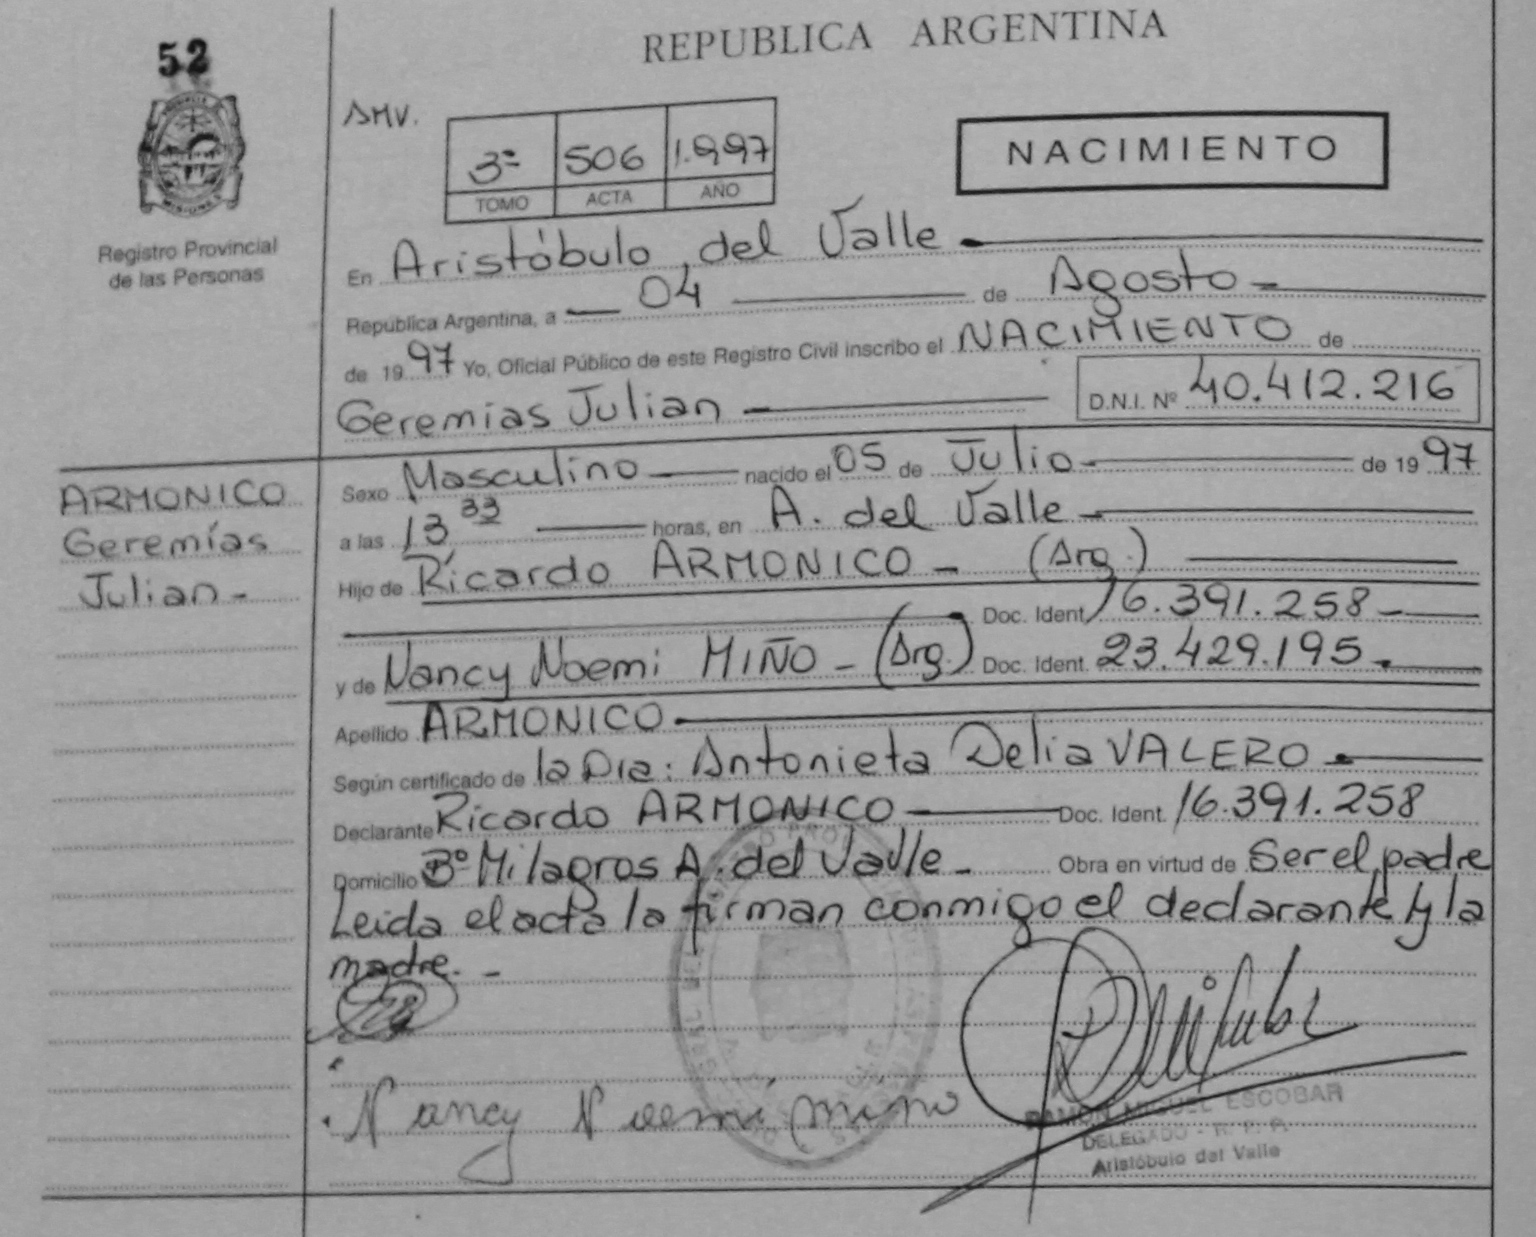 52
MISIONES
Registro Provincial
de las Personas
REPUBLICA ARGENTINA
AMV.
3º 506 1.997
TOMO ACTA AÑO
NACIMIENTO
En Aristóbulo del Valle
República Argentina, a 04 de Agosto
de 1997 Yo, Oficial Público de este Registro Civil inscribo el NACIMIENTO de
Geremias Julian D.N.I. Nº 40.412.216
ARMONICO
Geremías
Julian-
Sexo Masculino nacido el 05 de Julio de 1997
a las 13 33 horas, en A. del Valle
Hijo de Ricardo ARMONICO - (Arg.)
Doc. Ident. 16.391.258
y de Nancy Noemi MIÑO - (Arg.) Doc. Ident. 23.429.195
Apellido ARMONICO
Según certificado de la Dra: Antonieta Delia VALERO
Declarante Ricardo ARMONICO Doc. Ident. 16.391.258
Domicilio Bº Milagros A. del Valle - Obra en virtud de Ser el padre
Leida el acta la firman conmigo el declarante y la
madre. -
Nancy Noemi miño
RAMON MIGUEL ESCOBAR
DELEGADO - R. P. P.
Aristóbulo del Valle